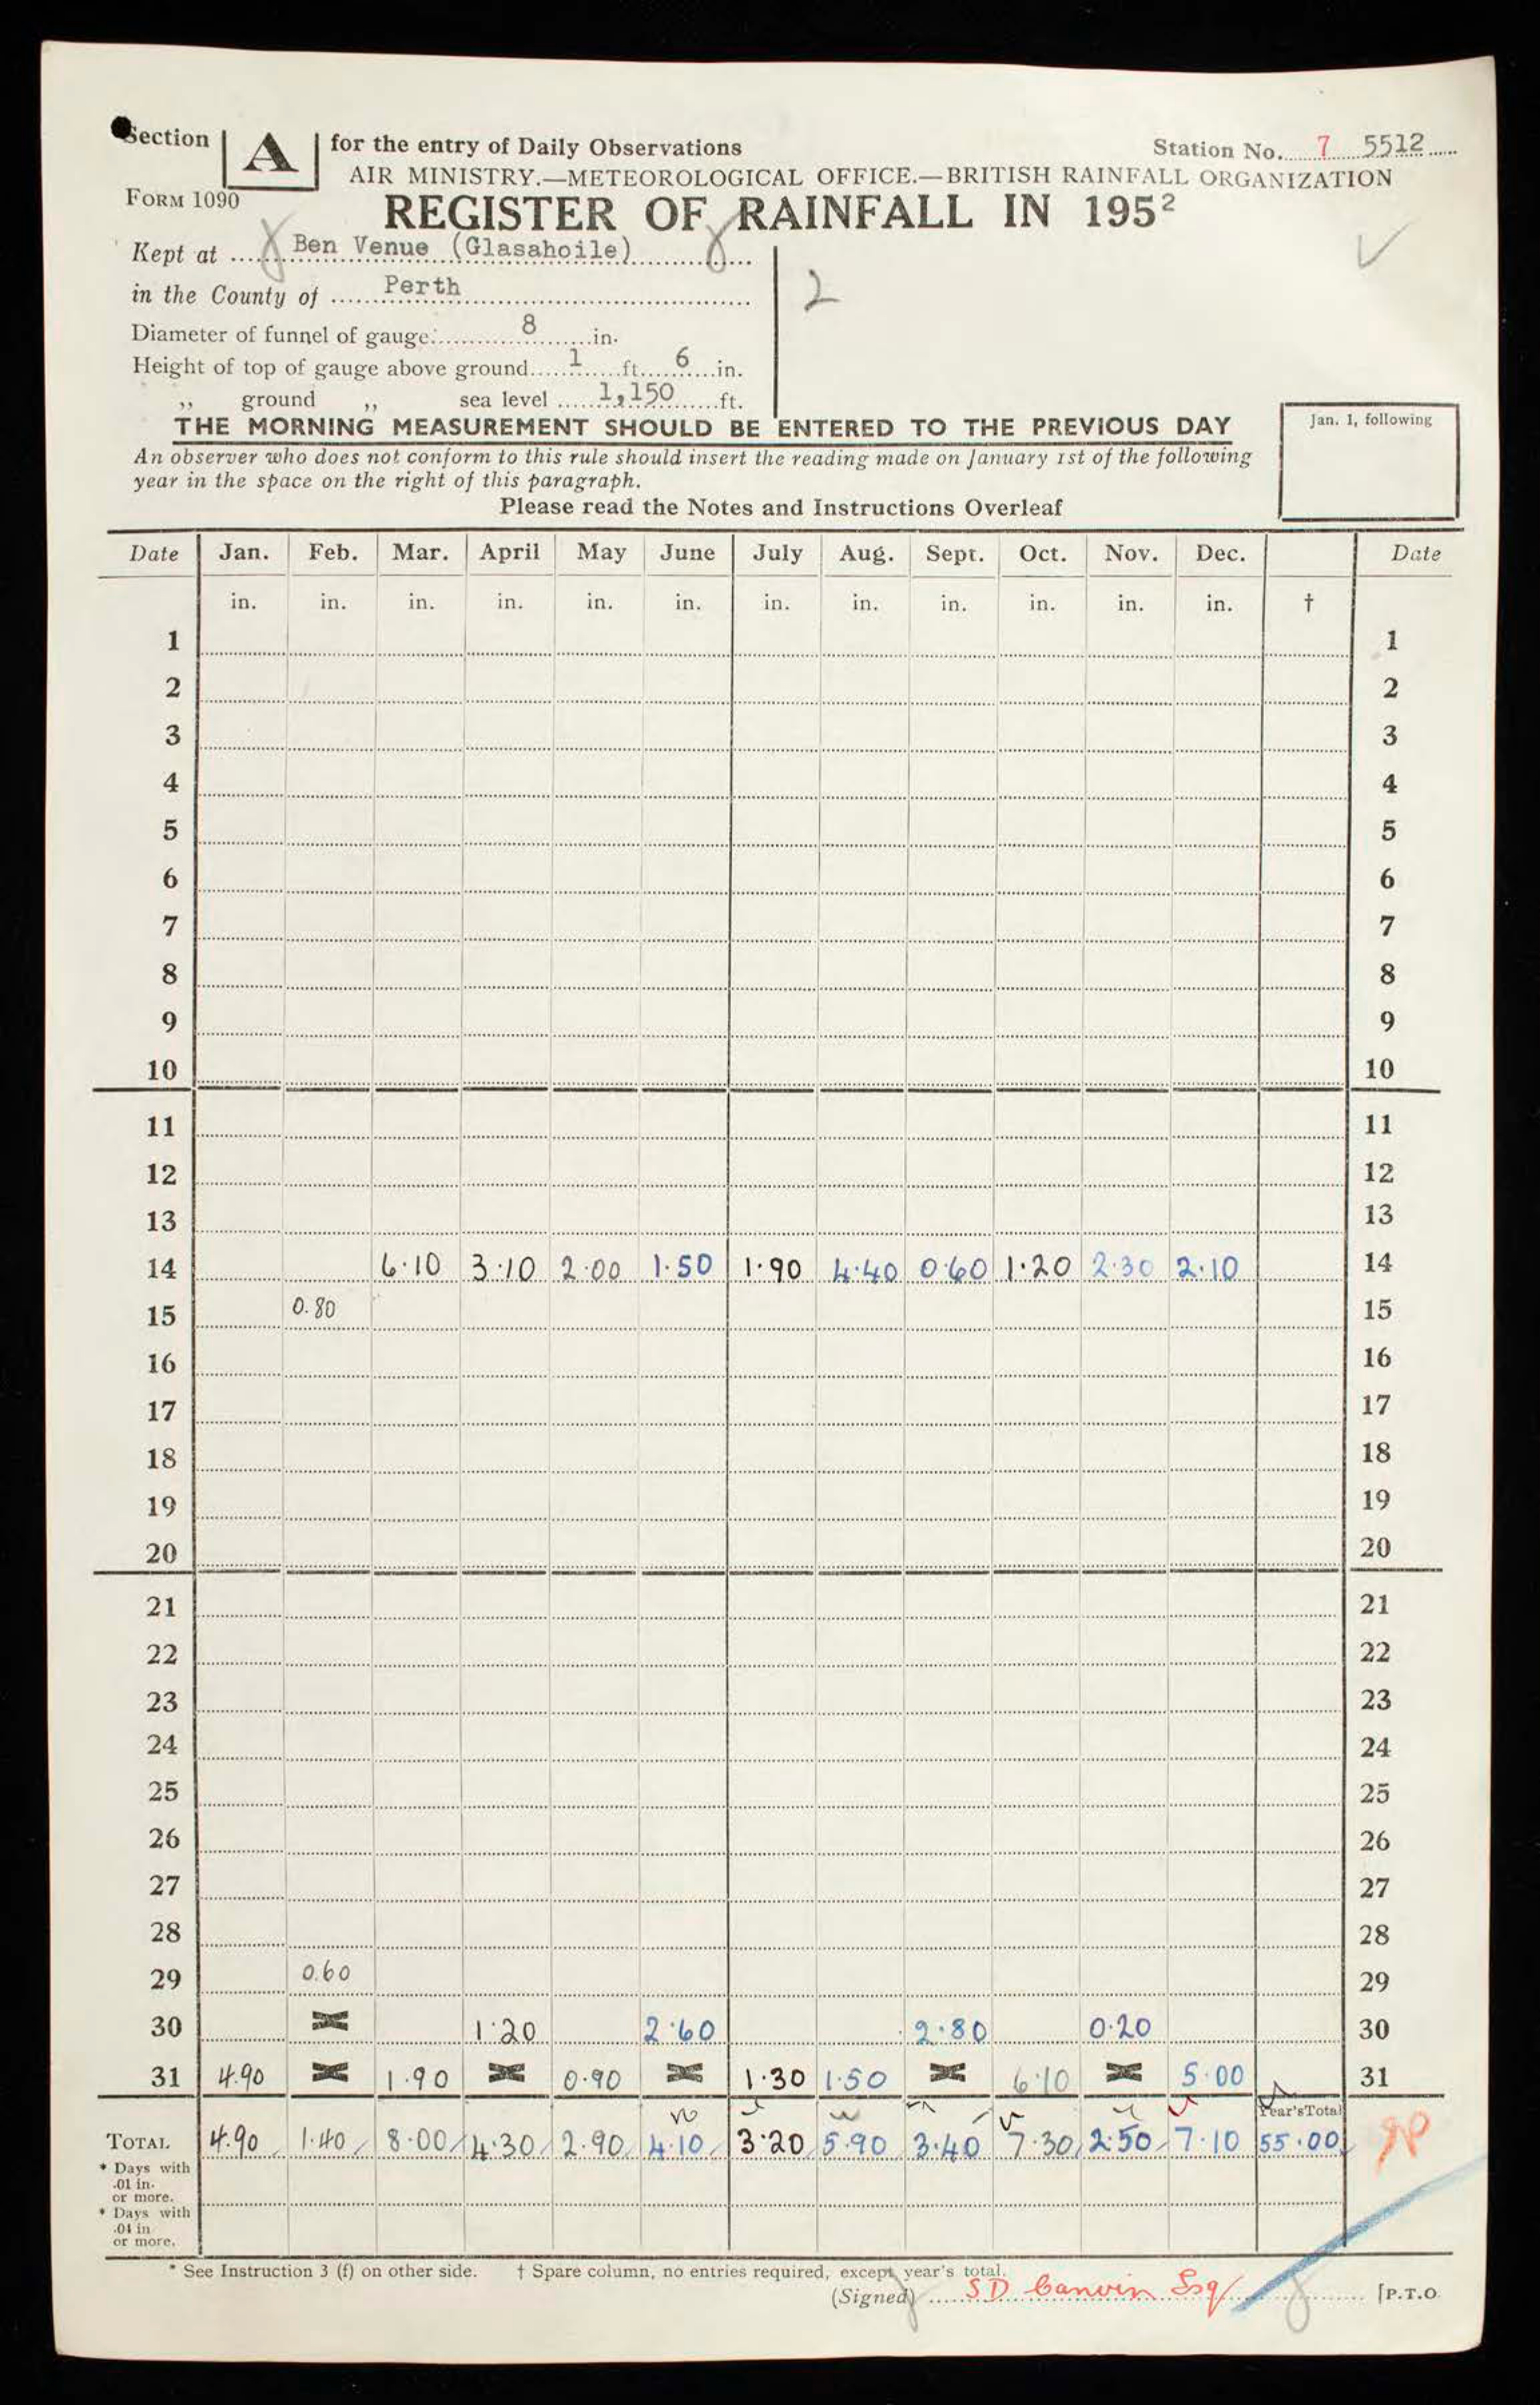 Section A for the entry of Daily Observations Station No. 7 5512
AIR MINISTRY.—METEOROLOGICAL OFFICE.—BRITISH RAINFALL ORGANIZATION
FORM 1090
REGISTER OF RAINFALL IN 1952
Kept at Ben Venue (Glasahoile)
in the County of Perth
2
Diameter of funnel of gauge 8 in.
Height of top of gauge above ground 1 ft. 6 in.
,, ground ,, sea level 1,150 ft.
THE MORNING MEASUREMENT SHOULD BE ENTERED TO THE PREVIOUS DAY
Jan. 1, following
An observer who does not conform to this rule should insert the reading made on January 1st of the following
year in the space on the right of this paragraph.
Please read the Notes and Instructions Overleaf
Date Jan. Feb. Mar. April May June July Aug. Sept. Oct. Nov. Dec. Date
in. in. in. in. in. in. in. in. in. in. in. in. †
1 1
2 2
3 3
4 4
5 5
6 6
7 7
8 8
9 9
10 10
11 11
12 12
13 13
14 6.10 3.10 2.00 1.50 1.90 4.40 0.60 1.20 2.30 2.10 14
15 0.80 15
16 16
17 17
18 18
19 19
20 20
21 21
22 22
23 23
24 24
25 25
26 26
27 27
28 28
29 0.60 29
30 1.20 2.60 2.80 0.20 30
31 4.90 1.90 0.90 1.30 1.50 6.10 5.00 31
Year's Total
TOTAL 4.90 1.40 8.00 4.30 2.90 4.10 3.20 5.90 3.40 7.30 2.50 7.10 55.00
* Days with
.01 in.
or more.
* Days with
.04 in
or more.
* See Instruction 3 (f) on other side. † Spare column, no entries required, except year's total.
(Signed) S D Canvin Esq [P.T.O.